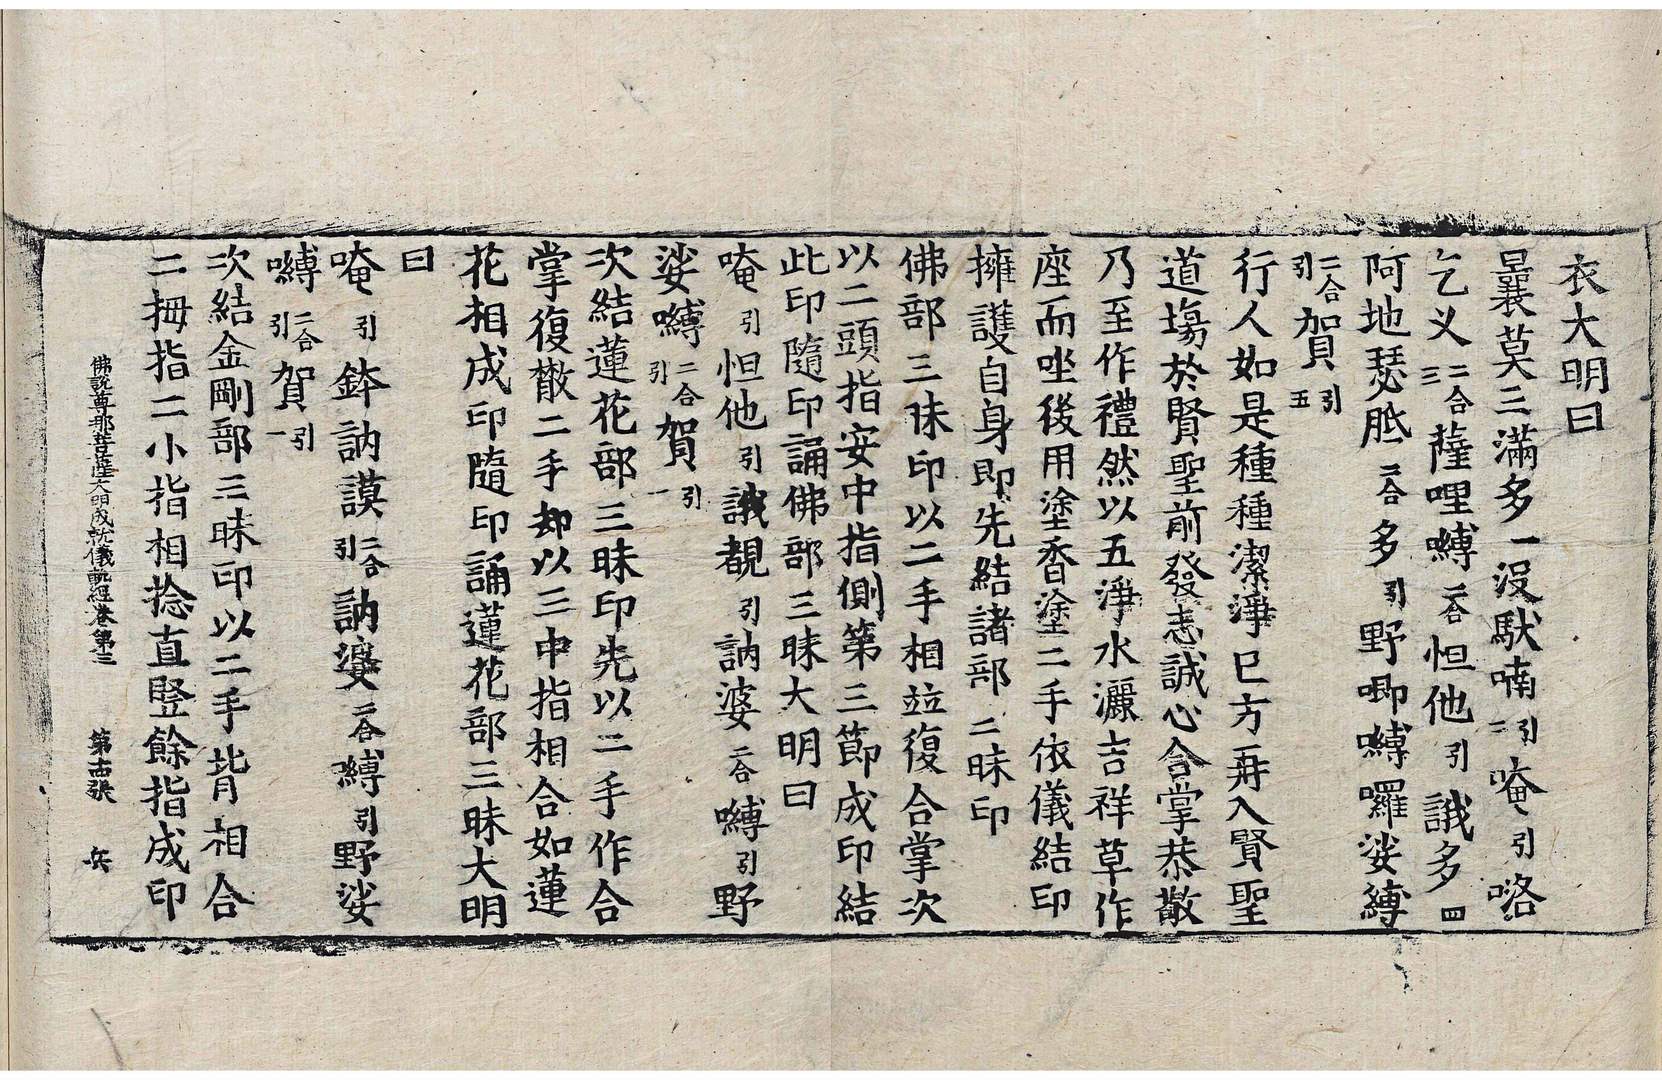 衣大明曰
曩莫三滿多一沒馱喃引二唵引咯
乞乂二合三薩哩嚩二合怛他引誐多四
阿地瑟胝二合多引野唧嚩囉娑嚩
二合引賀引五
行人如是種種潔淨已方再入賢聖
道場於賢聖前發志誠心合掌恭敬
乃至作禮然以五淨水灑吉祥草作
座而坐後用塗香塗二手依儀結印
擁護自身即先結諸部三昧印
佛部三昧印以二手相竝復合掌次
以二頭指安中指側第三節成印結
此印隨印誦佛部三昧大明曰
唵引怛他引誐覩引訥婆二合嚩引野
娑嚩二合引賀引一
次結蓮花部三昧印先以二手作合
掌復散二手却以三中指相合如蓮
花相成印隨印誦蓮花部三昧大明
曰
唵引鉢訥謨二合引訥婆二合嚩引野娑
嚩二合引賀引一
次結金剛部三昧印以二手背相合
二拇指二小指相捻直竪餘指成印
佛說尊那菩薩大明成就儀軌經卷第三 第十四張 兵